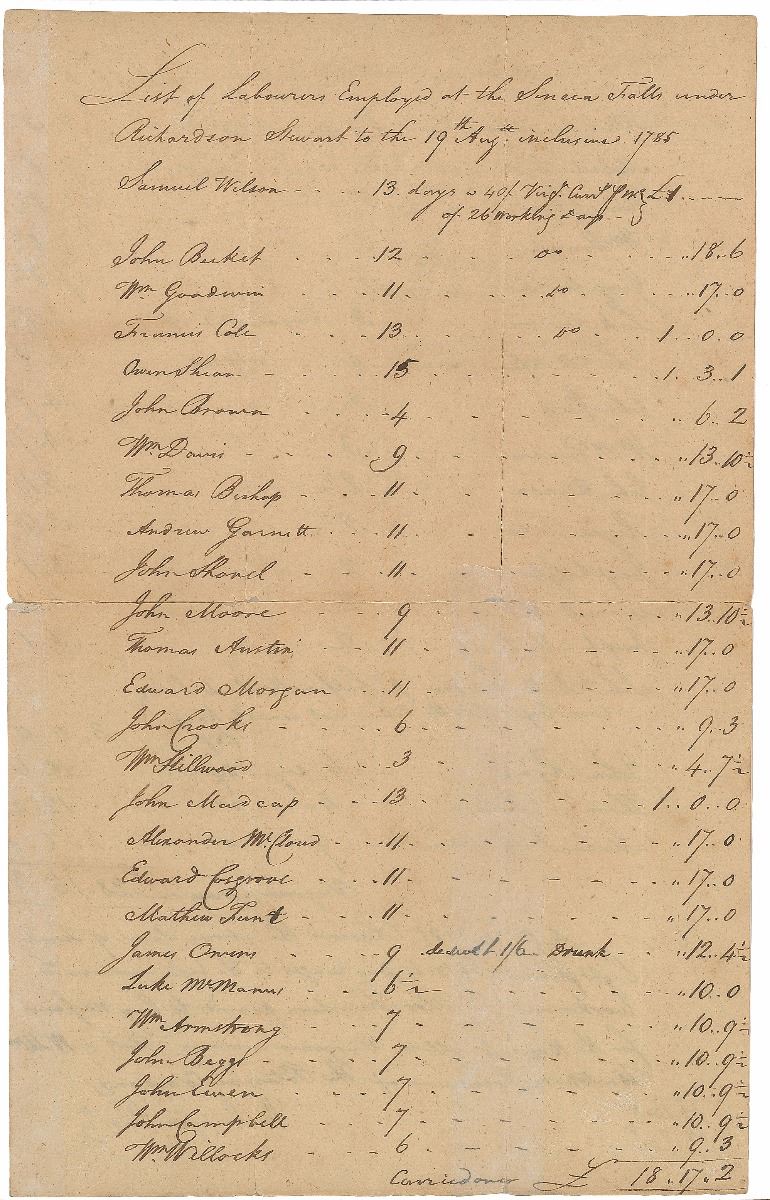 List of Labourers Employed at the Seneca Falls under
Richardson Stewart to the 19th Augst. inclusive 1785
Samuel Wilson - - - - 13 days @ 40/ Virga. Curry. £1. - -
of 26 Working Days -
John Becket - - - 12 - - Do - - " 18 .. 6
Wm Goodwin - - - 11 - - Do - - " 17 .. 0
Francis Cole - - - 13 - - Do - - 1 .. 0 .. 0
Owen Shean - - - 15 - - - - 1 .. 3 .. 1
John Brown - - - 4 - - - - " 6 .. 2
Wm Davis - - - 9 - - - - " 13 .. 10½
Thomas Bishop - - - 11 - - - - " 17 .. 0
Andrew Garnett - - - 11 - - - - " 17 .. 0
John Shovel - - - 11 - - - - " 17 .. 0
John Moore - - - 9 - - - - " 13 .. 10½
Thomas Austin - - - 11 - - - - " 17 .. 0
Edward Morgan - - - 11 - - - - " 17 .. 0
John Crooks - - - 6 - - - - " 9 .. 3
Wm Hillwood - - - 3 - - - - " 4 .. 7½
John Madcap - - - 13 - - - - 1 .. 0 .. 0
Alexander McCloud - - - 11 - - - - " 17 .. 0
Edward Cosgrove - - - 11 - - - - " 17 .. 0
Mathew - - - 11 - - - - " 17 .. 0
James Owens - - - 9 - deduct 1/6 Drunk - - " 12 .. 4½
Luke McManus - - - 6½ - - - - " 10 .. 0
Wm Armstrong - - - 7 - - - - " 10 .. 9½
John Beggs - - - 7 - - - - " 10 .. 9½
John Ewen - - - 7 - - - - " 10 .. 9½
John Campbell - - - 7 - - - - " 10 .. 9½
Wm Willocks - - - 6 - - - - " 9 .. 3
Carried over £ 18 .. 17 .. 2